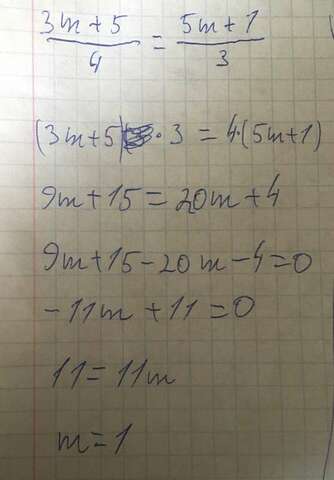 (3m+5)/4 = (5m+1)/3
(3m+5)·3 = 4·(5m+1)
9m+15=20m+4
9m+15-20m-4=0
-11m+11=0
11=11m
m=1